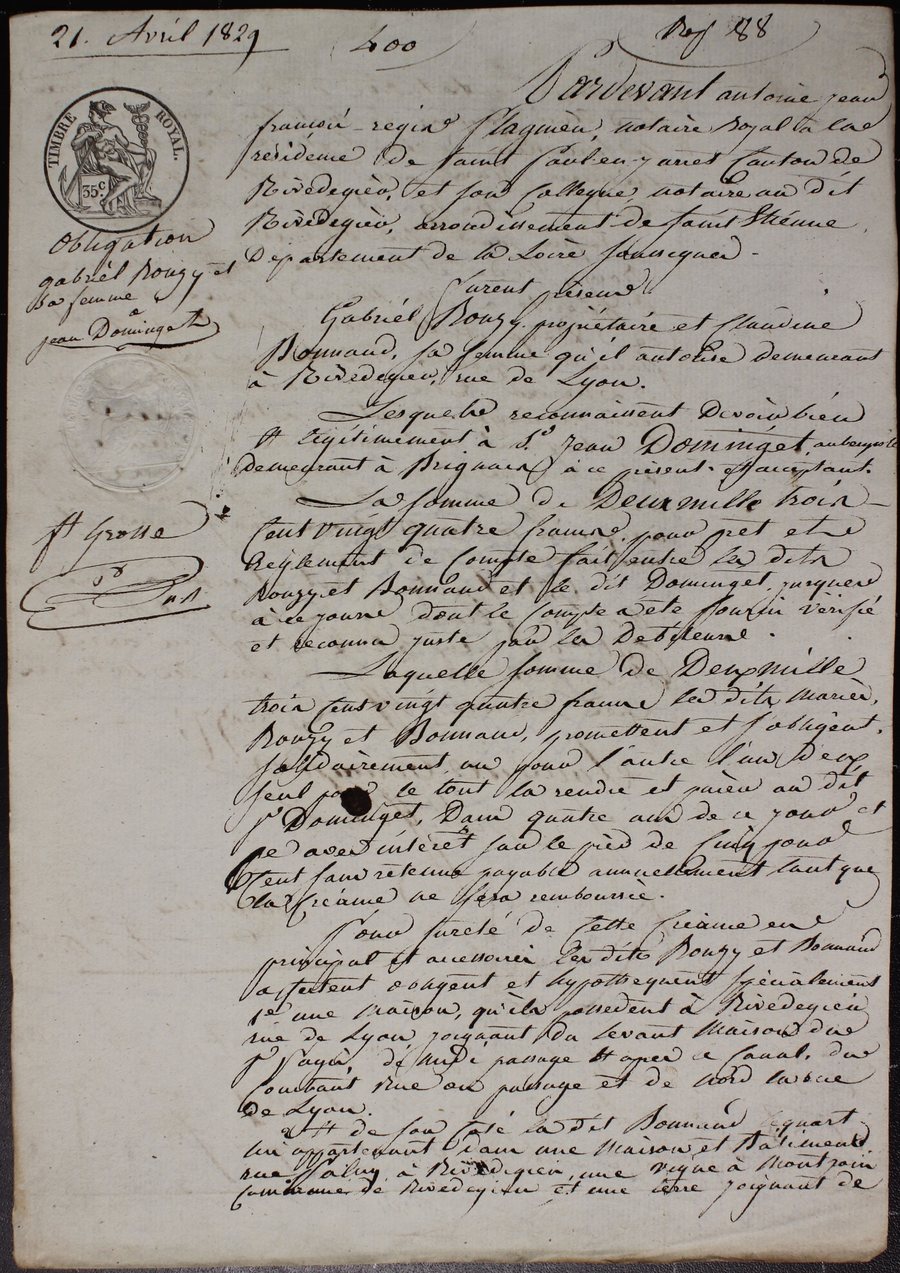 21. Avril 1829
400
Rég 88
TIMBRE ROYAL.
35 c
Obligation
gabriël Bouzy et
sa femme
a
jean Domingét
ft Grosse
Pardevant antoine jean
françois-régis notaire Royal à la
résidence de Saint Paul-en-jarret Canton de
Rivedegièr, et son Collegue, notaire au dit
Rivedegièr, arrondissement de Saint Etienne,
Département de la Loire soussignés.
furent présens
Gabriël Bouzy propriétaire et Claudine
Bonnand, sa femme qu'il autorise demeurant
à Rivedegier, rue de Lyon.
Lesquels reconnaissent Devoir bien
et légitimement à Sr. jean Domingét, aubergiste
demeurant à Brignais, à ce présent et acceptant.
La Somme de Deux mille trois
Cent vingt quatre francs, pour pret et
Règlement de Compte fait entre les dits
Bouzy et Bonnand et le dit Domingét jusques
à ce jour dont le Compte a été fourni vérifié
et reconnu juste par les Debiteurs.
Laquelle Somme de Deux mille
trois Cent vingt quatre francs les dits mariés,
Bouzy et Bonnand, promettent et s'obligent,
solidairement un pour l'autre l'un d'eux
seul pour le tout la rendre et païer au dit
Sr Domingét, Dans quatre ans de ce jour et
ce avec intérèt sur le pied de Cinq pour
Cent sans retenue payable annuellement tant que
la Créance ne sera remboursée.
Pour sureté de Cette Créance en
principal et accessoires les dits Bouzy et Bonnand
affectent obligent et hypothequent spécialement
1º une maison, qu'ils possedent à Rivedegièr
rue de Lyon, joignant du levant maison du
Sr de midi passage et après le Canal, du
Couchant rue ou passage et de nord la rue
de Lyon.
2º Et de son coté la dit Bonnand
un appartenant dans une maison et Batiment
rue à Rivedegier, une vigne à
Commune de Rivedegier et une terre joignant de